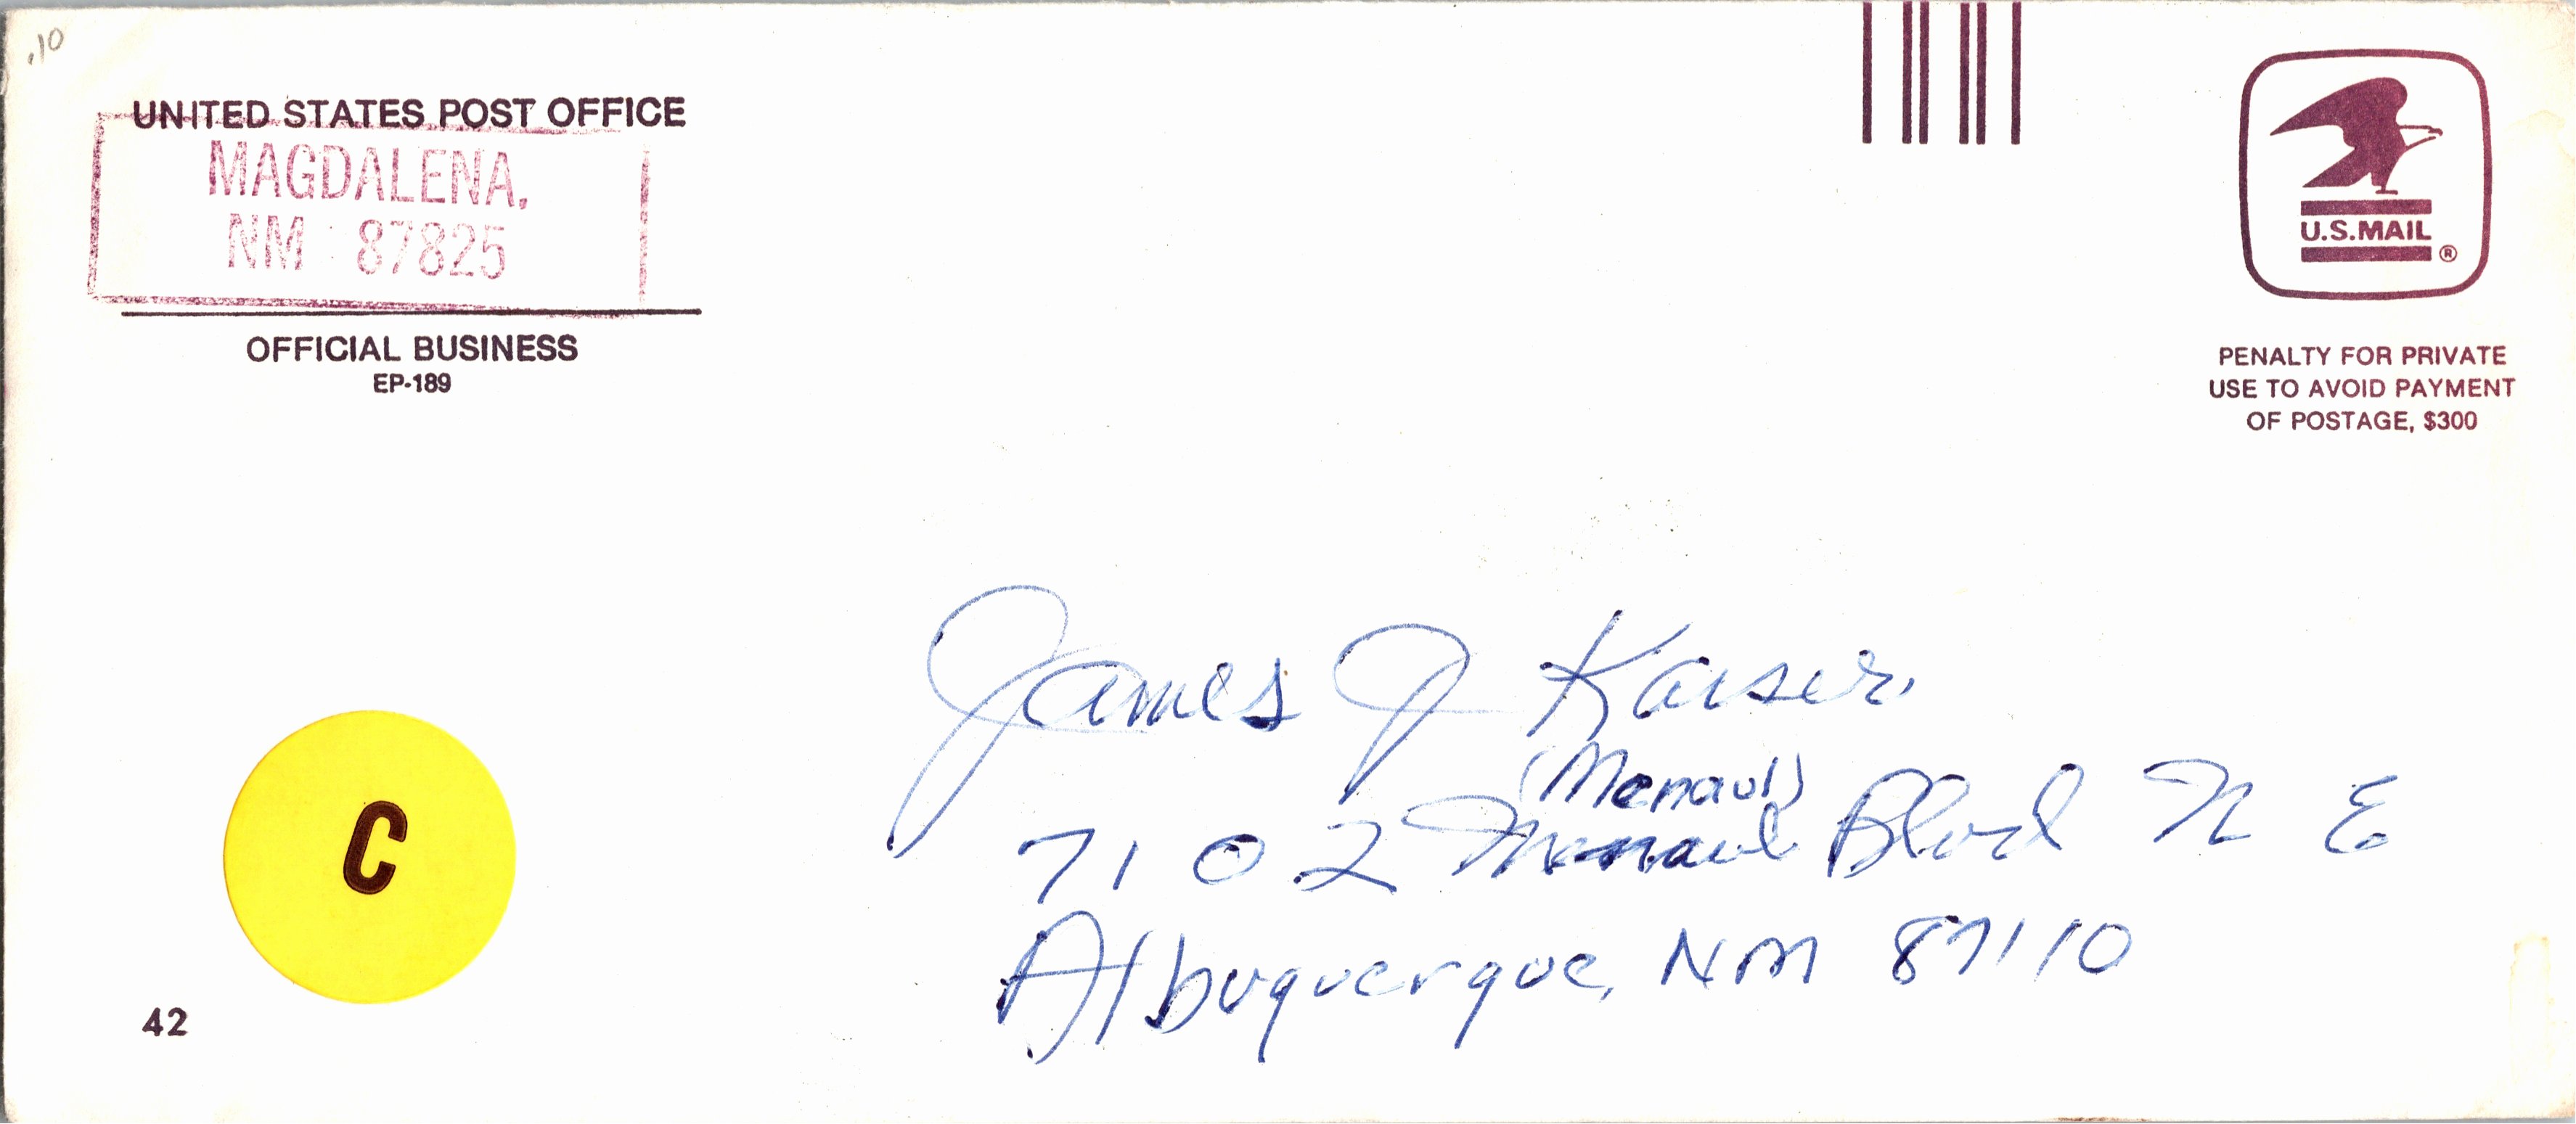 .10
UNITED STATES POST OFFICE
MAGDALENA,
NM 87825
OFFICIAL BUSINESS
EP-189
U.S.MAIL ®
PENALTY FOR PRIVATE
USE TO AVOID PAYMENT
OF POSTAGE, $300
James J Kaiser
(Menaul)
7102 Menaul Blvd N E
Albuquerque, NM 87110
C
42